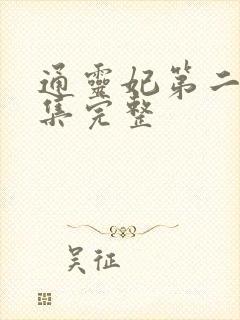 通靈妃第二
集完整
吴征